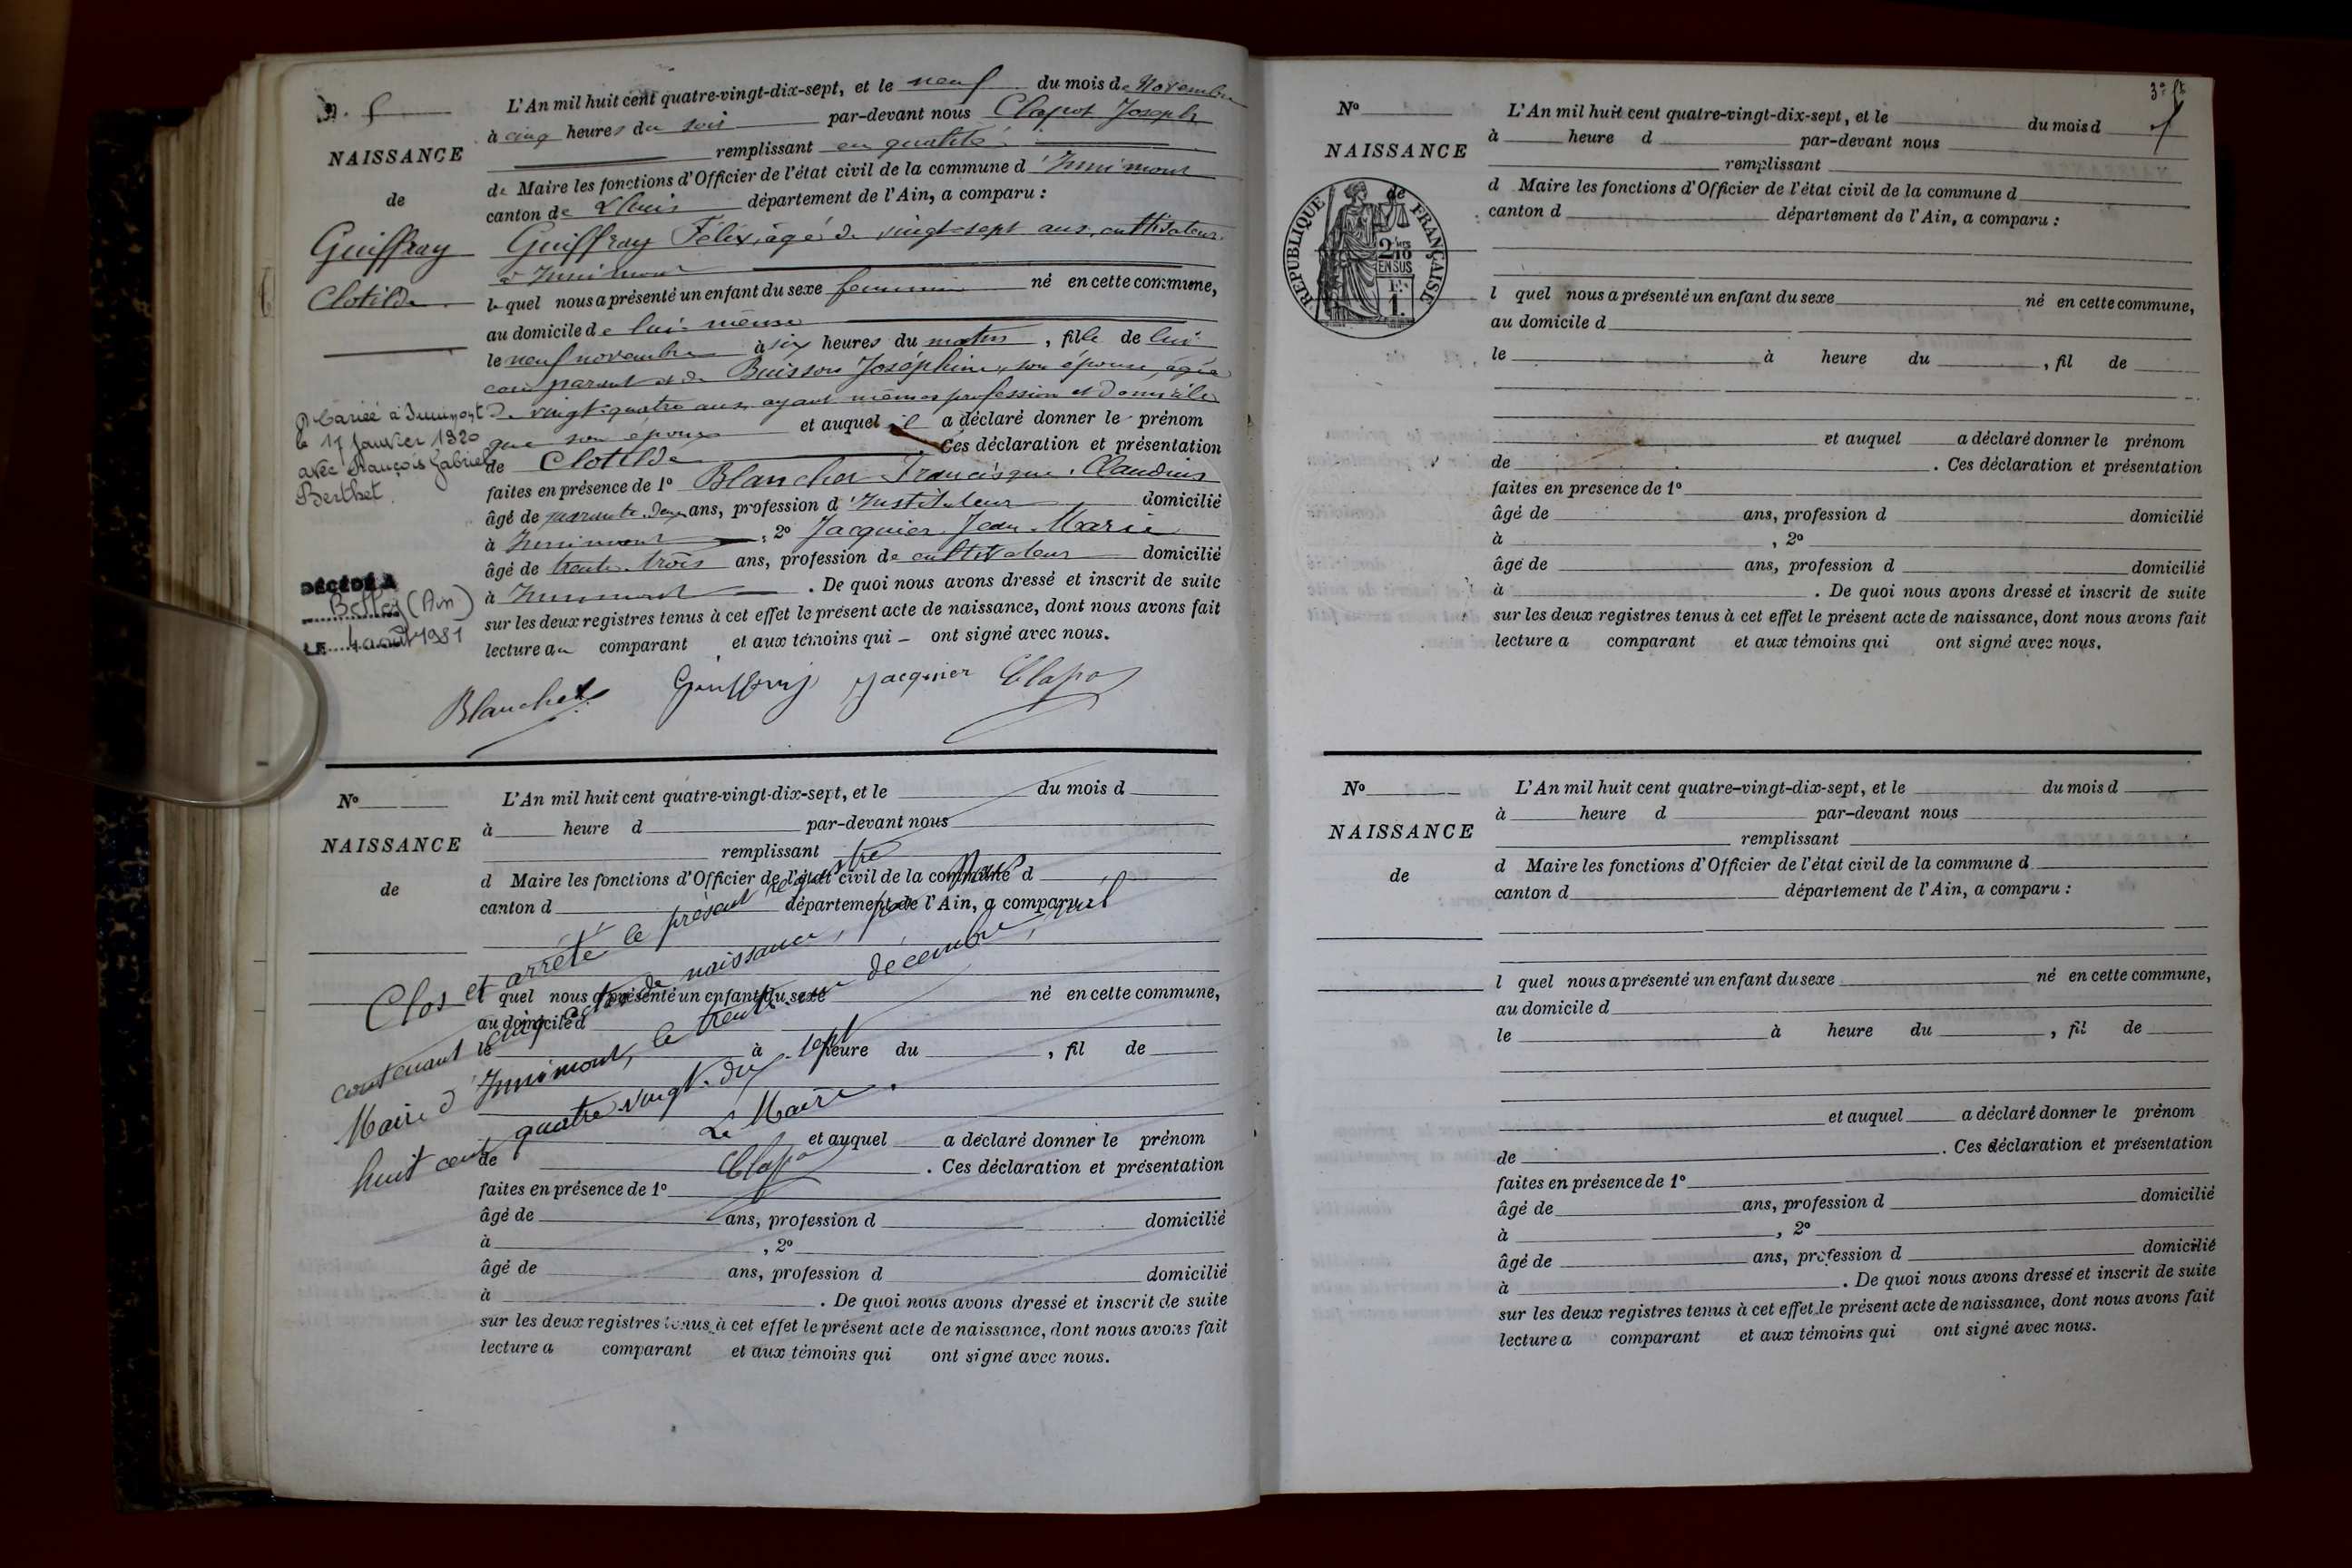 N. 5
NAISSANCE
de
Guiffray
Clotilde
Mariée à Innimont
le 17 Janvier 1920
avec François Gabriel
Berthet.
DÉCÉDÉ A
Belley (Ain)
LE 4 août 1981
L'An mil huit cent quatre-vingt-dix-sept, et le neuf du mois de Novembre
à cinq heures du soir par-devant nous Clapot Joseph
remplissant en qualité
de Maire les fonctions d'Officier de l'état civil de la commune d'Innimont
canton de Lhuis département de l'Ain, a comparu :
Guiffray Félix, âgé de vingt-sept ans, cultivateur
à Innimont
lequel nous a présenté un enfant du sexe féminin né en cette commune,
au domicile de lui-même
le neuf novembre à six heures du matin, fille de lui
comparant et de Buisson Joséphine, son épouse, âgée
de vingt-quatre ans, ayant mêmes profession et domicile
que son époux et auquel il a déclaré donner le prénom
de Clotilde . Ces déclaration et présentation
faites en présence de 1º Blanchet Francisque Claudius
âgé de quarante-deux ans, profession d'Instituteur domicilié
à Innimont, 2º Jacquier Jean Marie
âgé de trente-trois ans, profession de cultivateur domicilié
à Innimont . De quoi nous avons dressé et inscrit de suite
sur les deux registres tenus à cet effet le présent acte de naissance, dont nous avons fait
lecture au comparant et aux témoins qui ont signé avec nous.
Blanchet Guiffray Jacquier Clapot
Nº
NAISSANCE
de
L'An mil huit cent quatre-vingt-dix-sept, et le du mois d
à heure d par-devant nous
remplissant
d Maire les fonctions d'Officier de l'état civil de la commune d
canton d département de l'Ain, a comparu :
l quel nous a présenté un enfant du sexe né en cette commune,
au domicile d
le à heure du , fil de
et auquel a déclaré donner le prénom
de . Ces déclaration et présentation
faites en présence de 1º
âgé de ans, profession d domicilié
à , 2º
âgé de ans, profession d domicilié
à . De quoi nous avons dressé et inscrit de suite
sur les deux registres tenus à cet effet le présent acte de naissance, dont nous avons fait
lecture a comparant et aux témoins qui ont signé avec nous.
Clos et arrêté le présent registre
contenant cinq actes de naissance, par Nous
Maire d'Innimont, le trente-un décembre, mil
huit cent quatre vingt-dix sept
Le Maire
Clapot
3e ft
Nº
NAISSANCE
de
RÉPUBLIQUE FRANÇAISE
2/10
EN SUS
1.
L'An mil huit cent quatre-vingt-dix-sept, et le du mois d
à heure d par-devant nous
remplissant
d Maire les fonctions d'Officier de l'état civil de la commune d
canton d département de l'Ain, a comparu :
l quel nous a présenté un enfant du sexe né en cette commune,
au domicile d
le à heure du , fil de
et auquel a déclaré donner le prénom
de . Ces déclaration et présentation
faites en presence de 1º
âgé de ans, profession d domicilié
à , 2º
âgé de ans, profession d domicilié
à . De quoi nous avons dressé et inscrit de suite
sur les deux registres tenus à cet effet le présent acte de naissance, dont nous avons fait
lecture a comparant et aux témoins qui ont signé avec nous.
Nº
NAISSANCE
de
L'An mil huit cent quatre-vingt-dix-sept, et le du mois d
à heure d par-devant nous
remplissant
d Maire les fonctions d'Officier de l'état civil de la commune d
canton d département de l'Ain, a comparu :
l quel nous a présenté un enfant du sexe né en cette commune,
au domicile d
le à heure du , fil de
et auquel a déclaré donner le prénom
de . Ces déclaration et présentation
faites en présence de 1º
âgé de ans, profession d domicilié
à , 2º
âgé de ans, profession d domicilié
à . De quoi nous avons dressé et inscrit de suite
sur les deux registres tenus à cet effet le présent acte de naissance, dont nous avons fait
lecture a comparant et aux témoins qui ont signé avec nous.